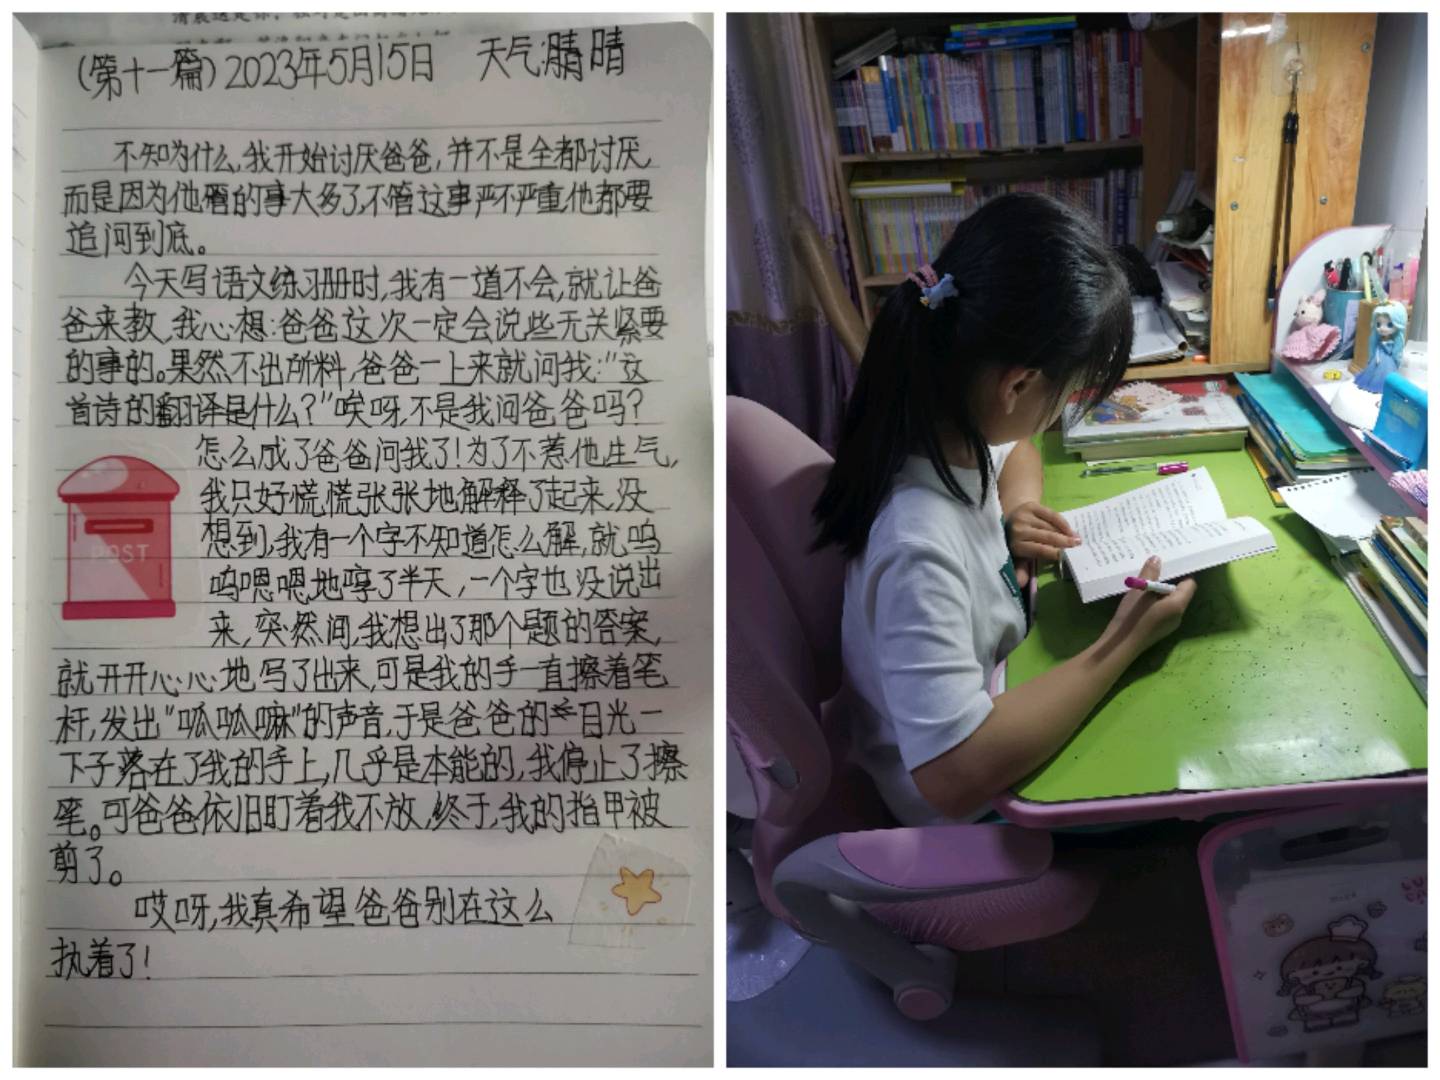 (第十一篇)2023年5月15日 天气:晴
不知为什么,我开始讨厌爸爸,并不是全都讨厌,
而是因为他管的事大多了,不管这事严不严重他都要
追问到底。
今天写语文练习册时,我有一道不会,就让爸
爸来教,我心想:爸爸这次一定会说些无关紧要
的事的。果然不出所料,爸爸一上来就问我:"这
首诗的翻译是什么?"唉呀,不是我问爸爸吗?
怎么成了爸爸问我了!为了不惹他生气,
我只好慌慌张张地解释了起来,没
想到,我有一个字不知道怎么解,就呜
呜嗯嗯地哼了半天,一个字也没说出
来,突然间,我想出了那个题的答案,
就开开心心地写了出来,可是我的手一直擦着笔
杆,发出"呱呱嘛"的声音,于是爸爸的目光一
下子落在了我的手上,几乎是本能的,我停止了擦
笔。可爸爸依旧盯着我不放,终于,我的指甲被
剪了。
哎呀,我真希望爸爸别在这么
执着了!
POST